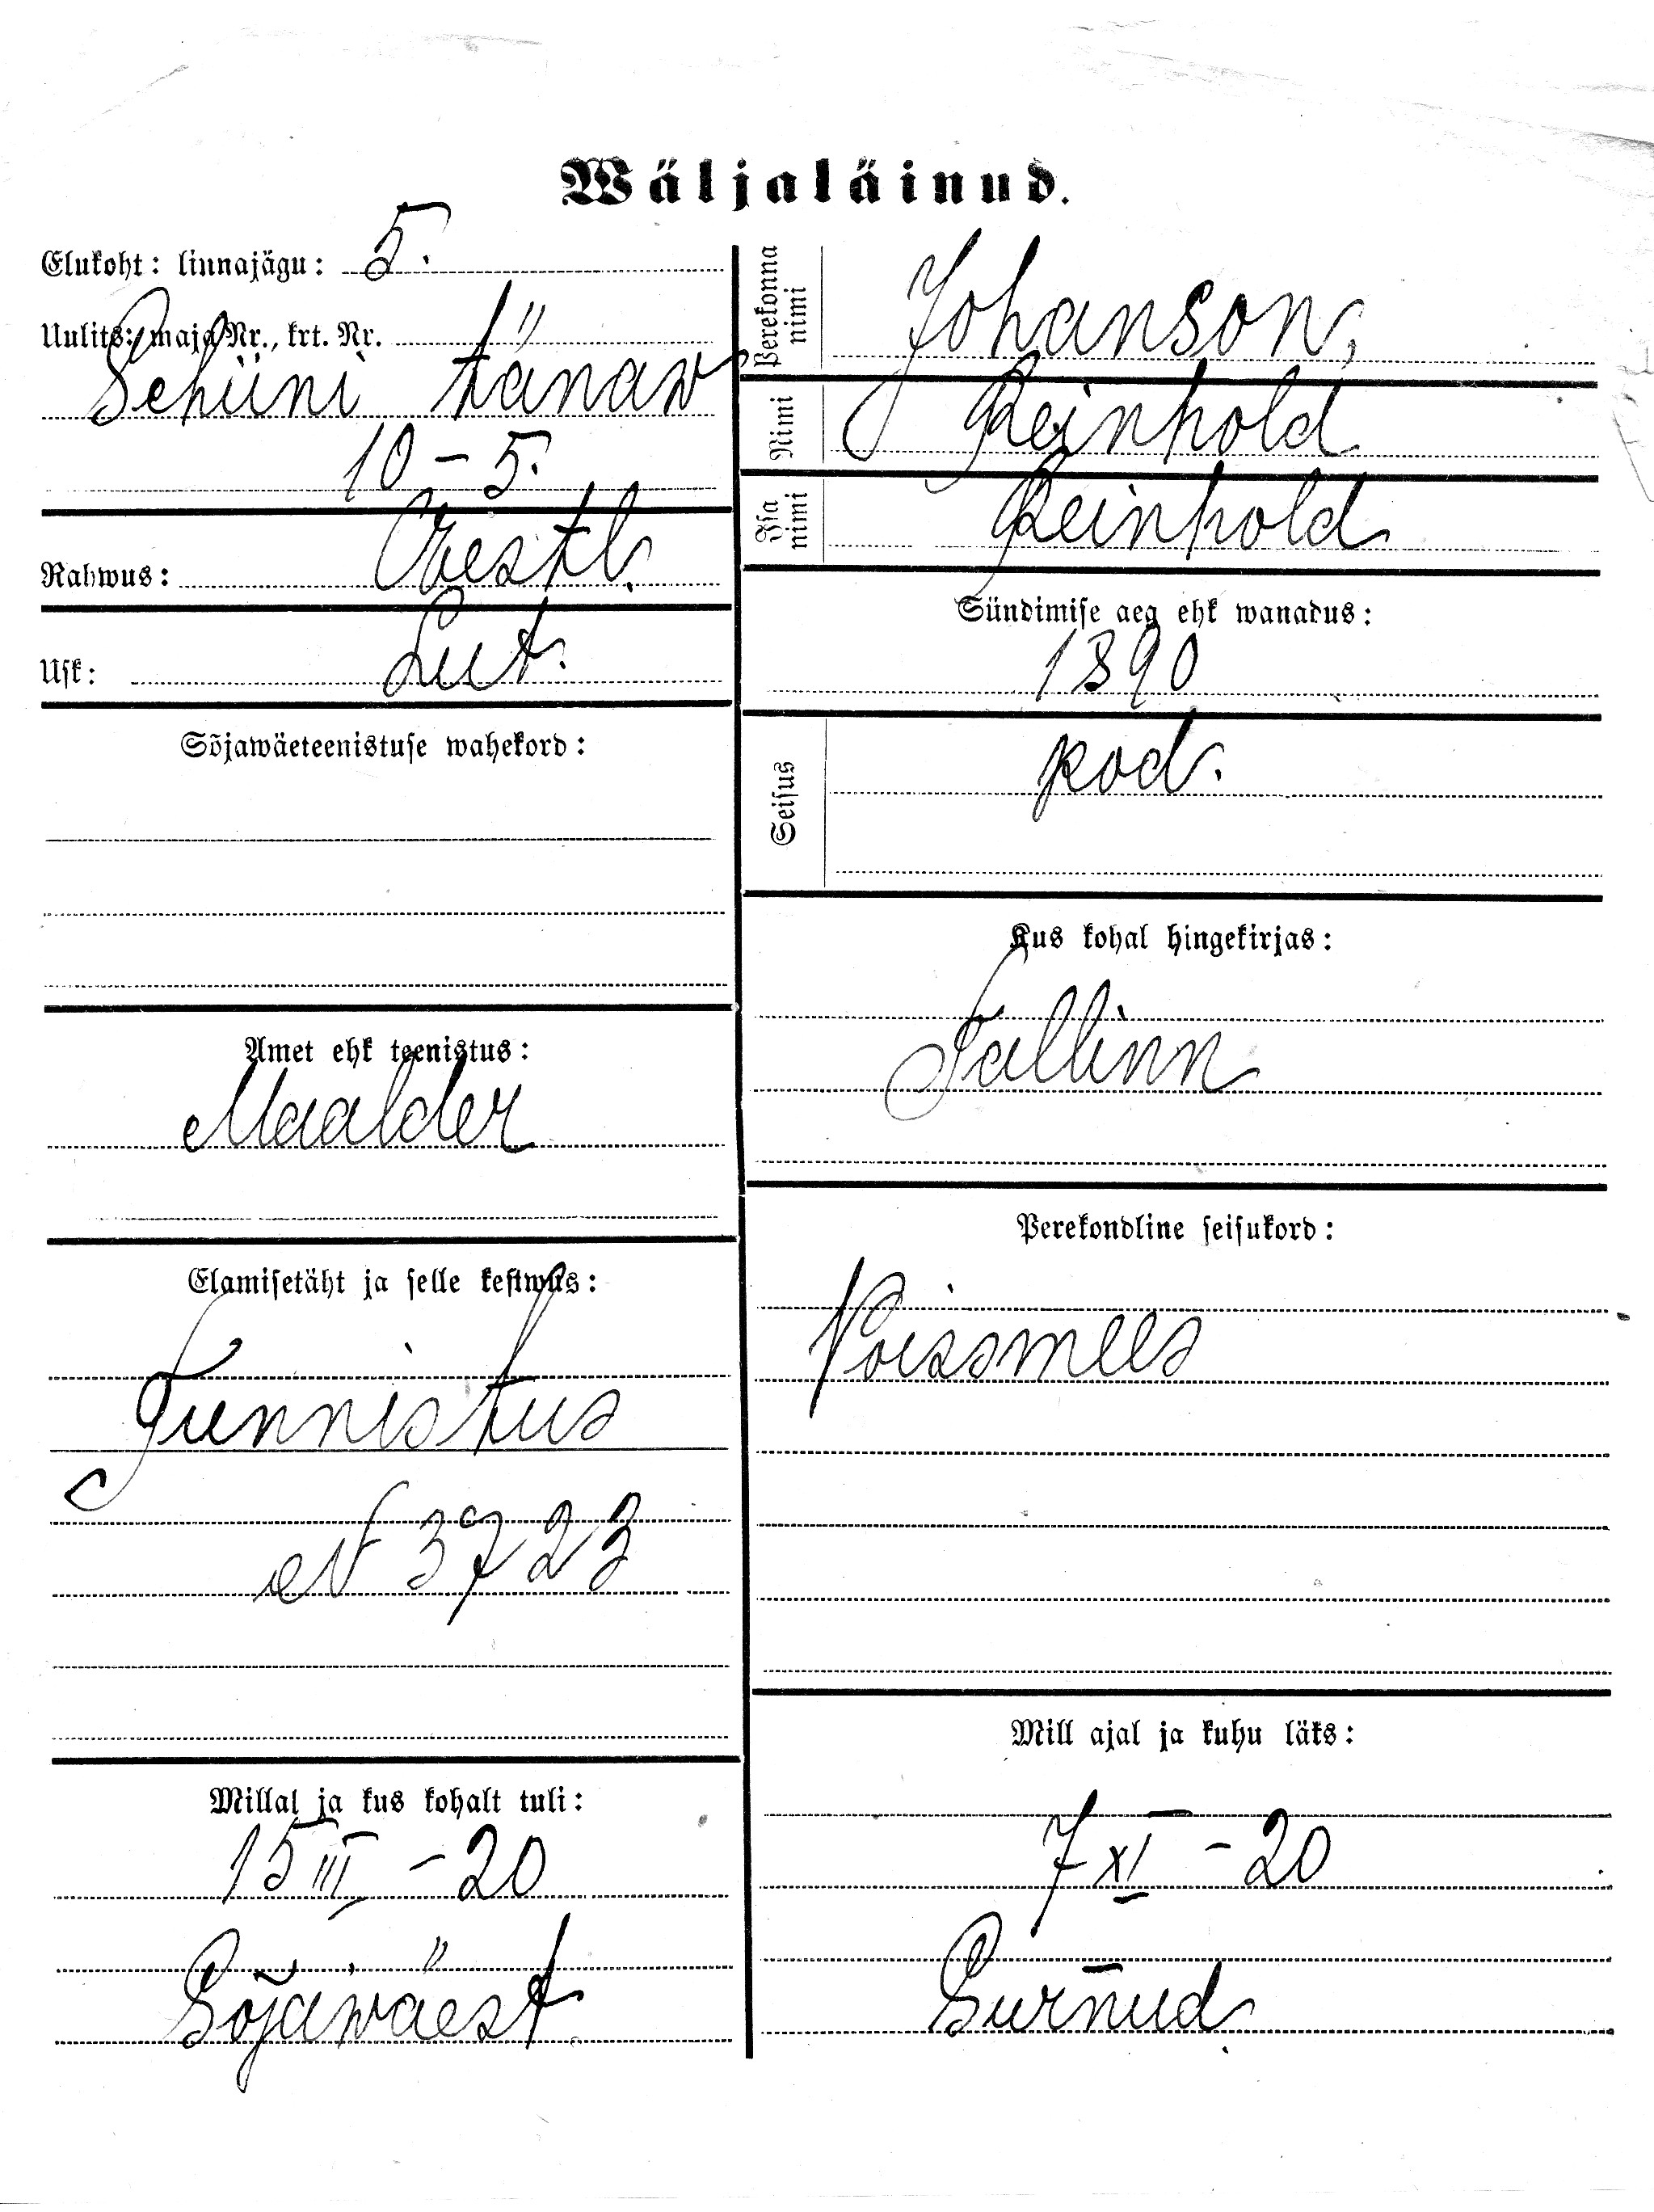 Wäljaläinud.
Elukoht: linnajägu: 5.
Uulits: maja Nr., krt. Nr.
Schüni tänaw
10 – 5.
Rahwus: Eestl.
Usk: Lut.
Sõjawäeteenistuse wahekord:
Amet ehk teenistus:
Maalder
Elamisetäht ja selle kestwus:
Tunnistus
N 3723
Millal ja kus kohalt tuli:
15 III – 20
Sõjawäest.
Perekonna nimi Johanson,
Nimi Reinhold
Isa nimi Reinhold
Sündimise aeg ehk wanadus:
1890
Seisus kod.
Kus kohal hingekirjas:
Tallinn
Perekondline seisukord:
Poissmees
Mill ajal ja kuhu läks:
7 XI – 20
Surnud.